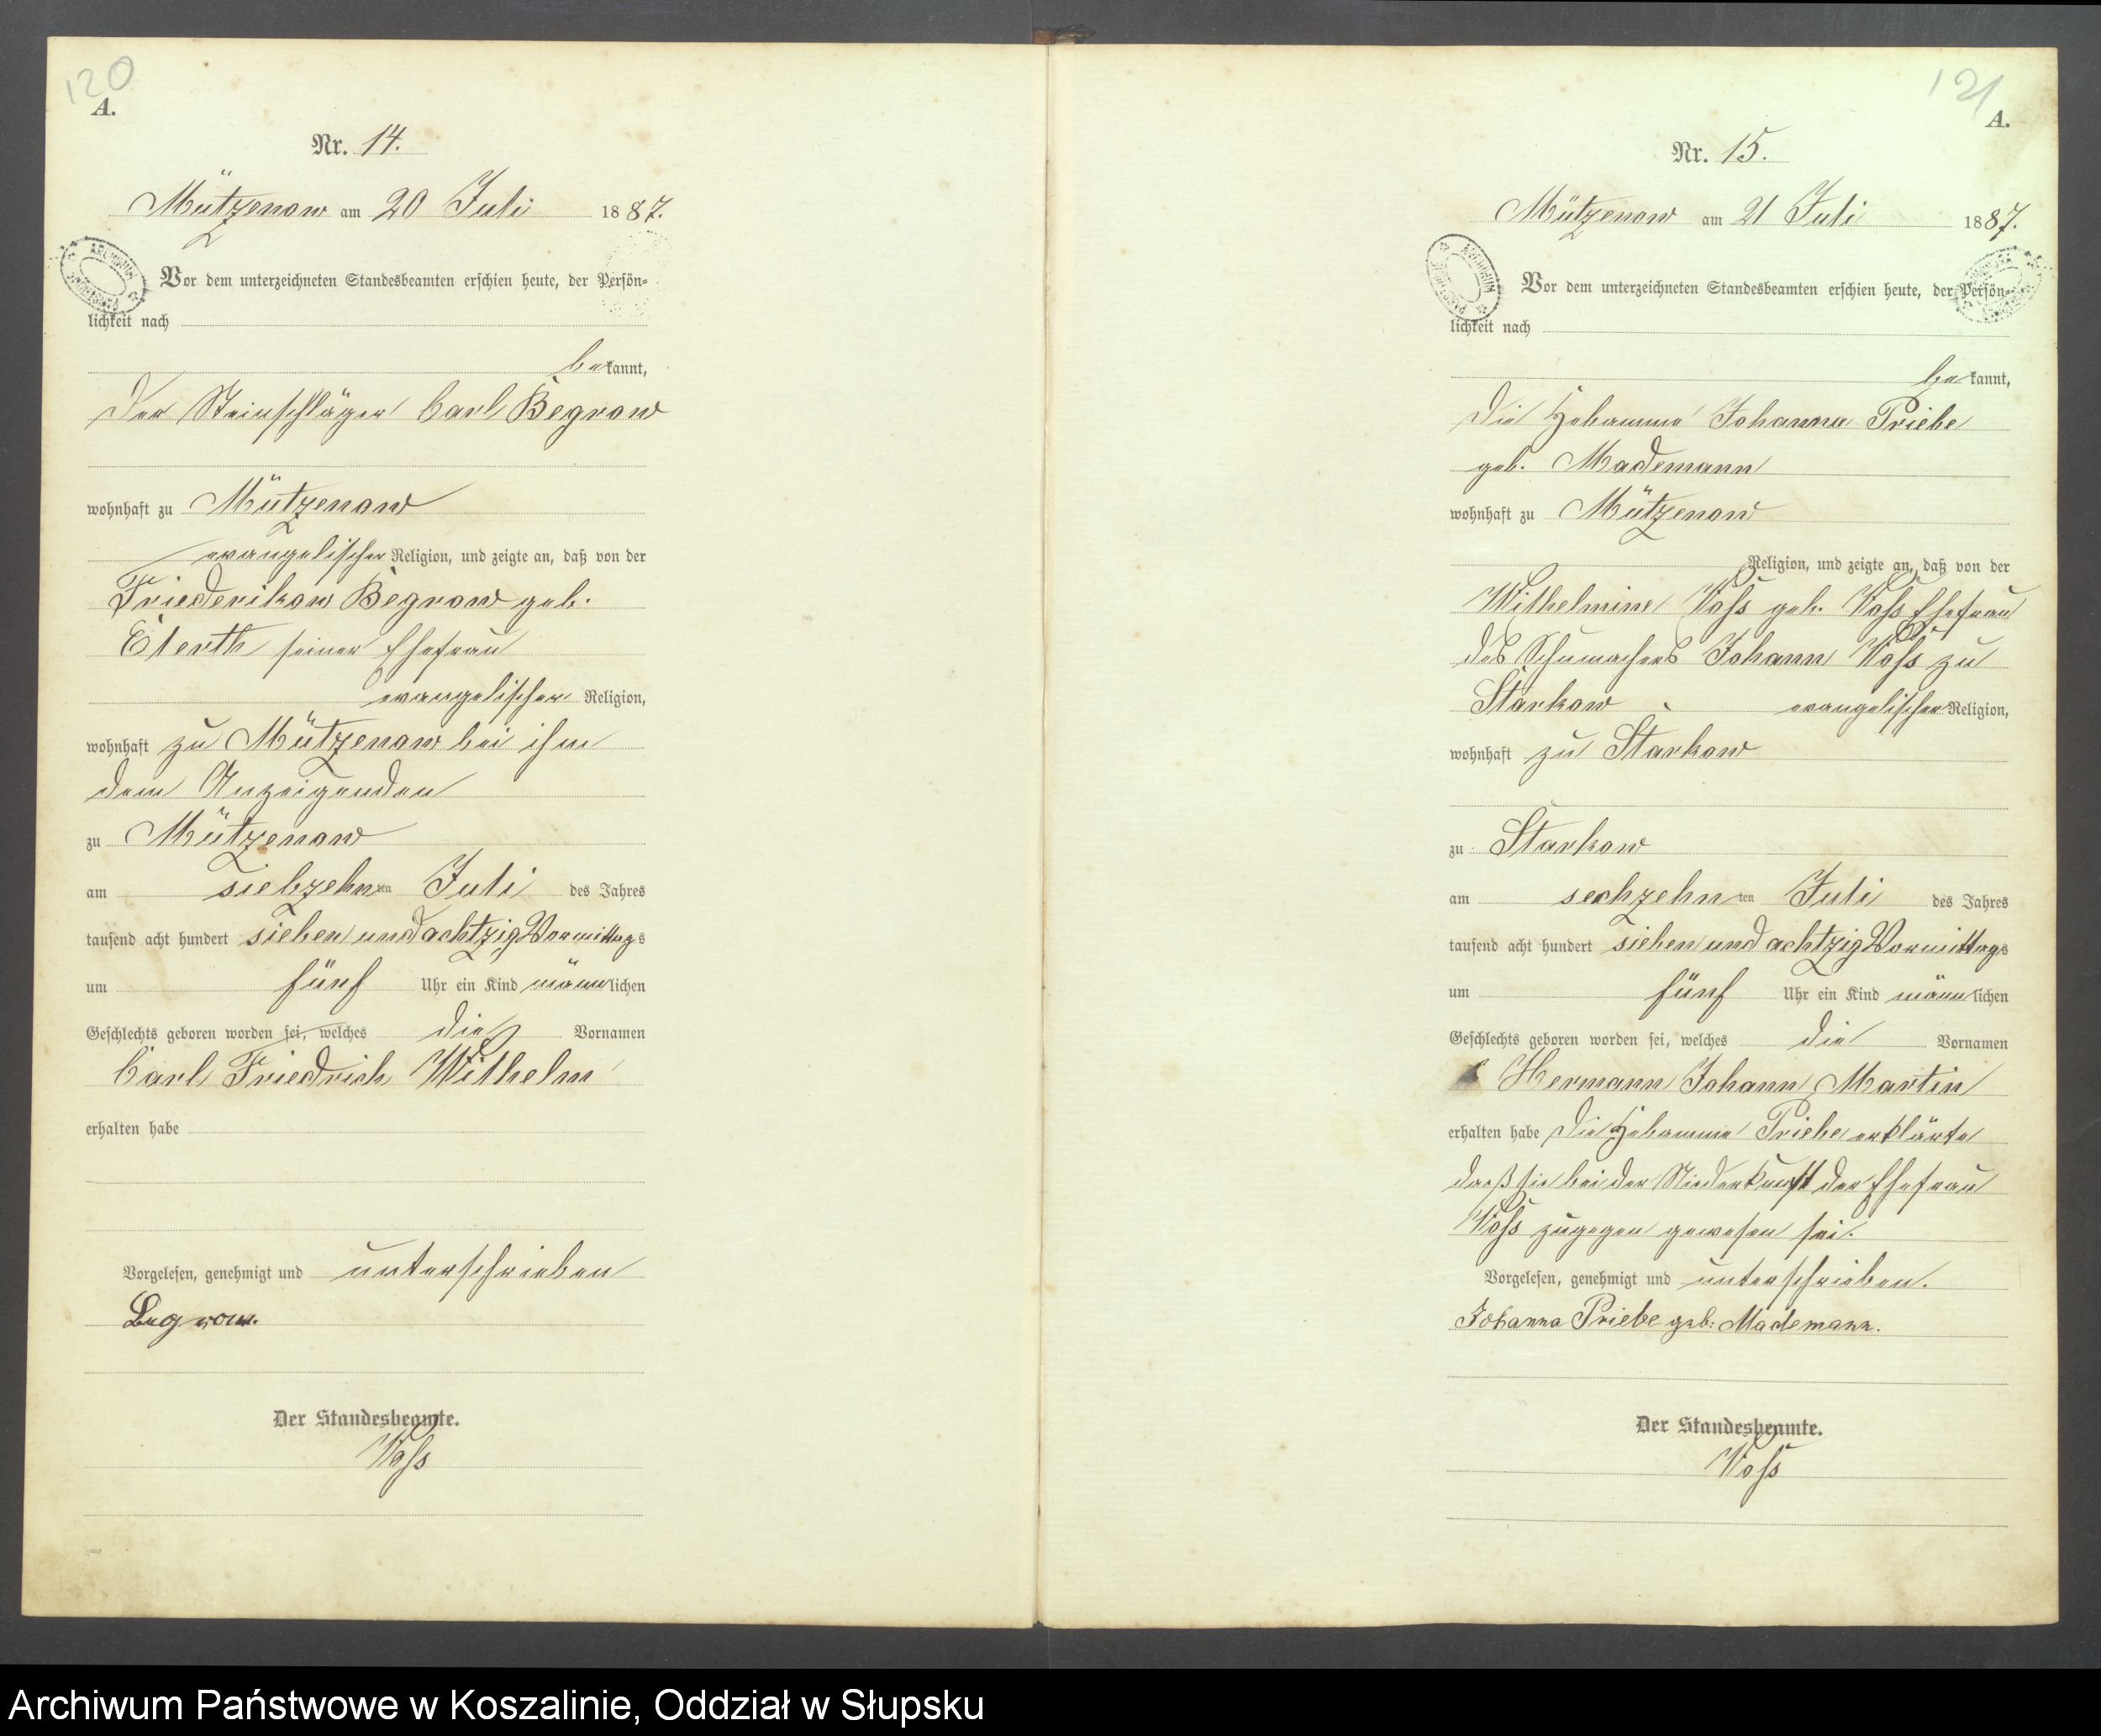 120
A.
Nr. 14.
Mützenow am 20 Juli 1887.
Vor dem unterzeichneten Standesbeamten erschien heute, der Persön-
lichkeit nach
bekannt,
der Steinschläger Carl Begrow
wohnhaft zu Mützenow
evangelischer Religion, und zeigte an, daß von der
Friederikow Begrow geb.
seiner Ehefrau
evangelischer Religion,
wohnhaft zu Mützenow bei ihm
dem Anzeigenden
zu Mützenow
am siebzehnten Juli des Jahres
tausend acht hundert sieben und achtzig Vormittags
um fünf Uhr ein Kind männlichen
Geschlechts geboren worden sei, welches die Vornamen
Carl Friedrich Wilhelm
erhalten habe
Vorgelesen, genehmigt und unterschrieben
Begrow.
Der Standesbeamte.
Voß
121
A.
Nr. 15.
Mützenow am 21 Juli 1887.
Vor dem unterzeichneten Standesbeamten erschien heute, der Persön-
lichkeit nach
bekannt,
die Hebamme Johanna Priebe
geb. Mademann
wohnhaft zu Mützenow
Religion, und zeigte an, daß von der
Wilhelmine Voß geb. Voß Ehefrau
des Schumachers Johann Voß zu
Starkow evangelischer Religion,
wohnhaft zu Starkow
zu Starkow
am sechzehnten Juli des Jahres
tausend acht hundert sieben und achtzig Vormittags
um fünf Uhr ein Kind männlichen
Geschlechts geboren worden sei, welches die Vornamen
Hermann Johann Martin
erhalten habe die Hebamme Priebe erklärte
daß sie bei der Niederkunft der Ehefrau
Voß zugegen gewesen sei.
Vorgelesen, genehmigt und unterschrieben.
Johanna Priebe geb: Mademann.
Der Standesbeamte.
Voß
Archiwum Państwowe w Koszalinie, Oddział w Słupsku